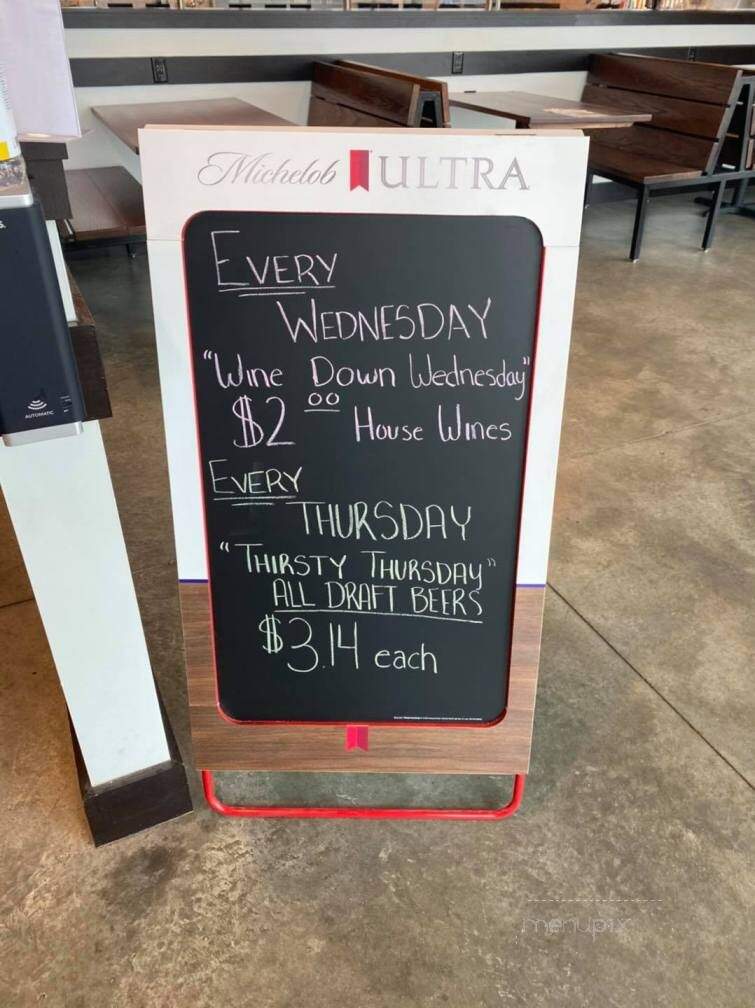 Michelob ULTRA
EVERY
WEDNESDAY
"Wine Down Wednesday"
$2 00 House Wines
EVERY
THURSDAY
"THIRSTY THURSDAY"
ALL DRAFT BEERS
$3.14 each
AUTOMATIC
menupix